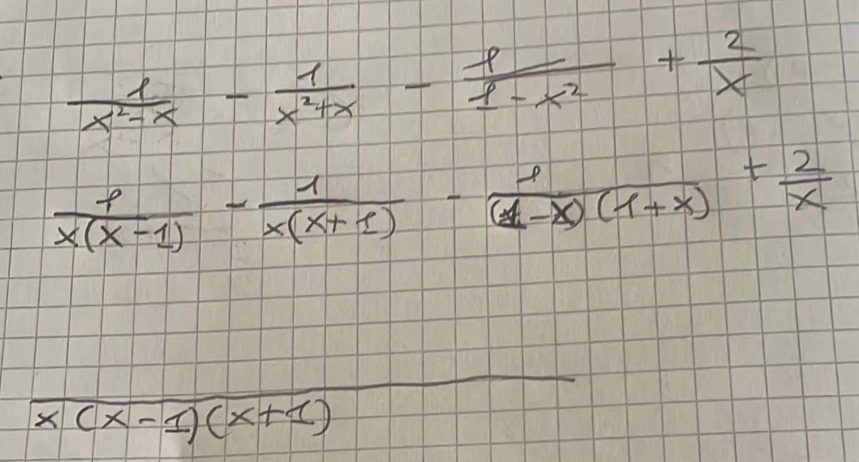 1/(x²-x) - 1/(x²+x) - 1/(1-x²) + 2/x
1/(x(x-1)) - 1/(x(x+1)) - 1/((1-x)(1+x)) + 2/x
/(x(x-1)(x+1))